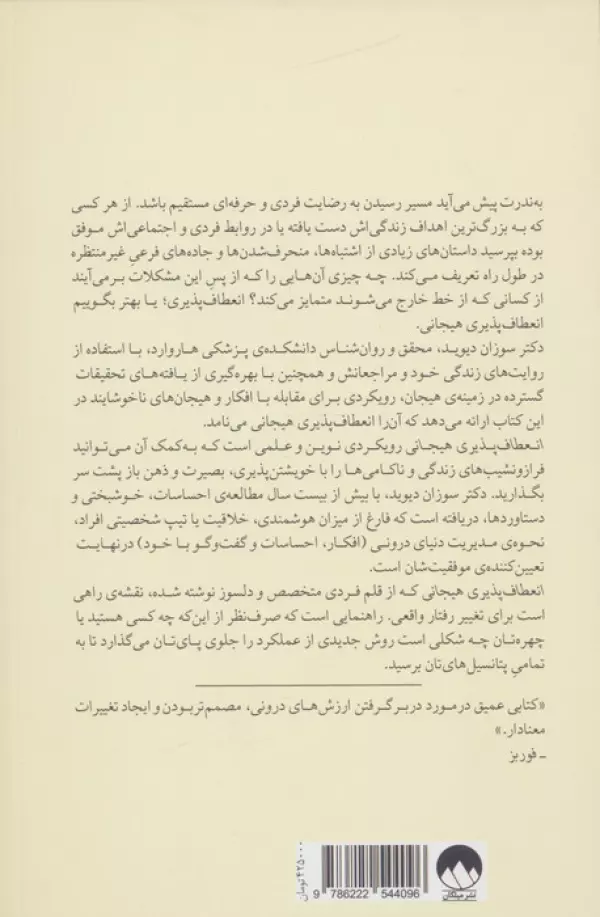 به‌ندرت پیش می‌آید مسیر رسیدن به رضایت فردی و حرفه‌ای مستقیم باشد. از هر کسی
که به بزرگ‌ترین اهداف زندگی‌اش دست یافته یا در روابط فردی و اجتماعی‌اش موفق
بوده بپرسید داستان‌های زیادی از اشتباه‌ها، منحرف‌شدن‌ها و جاده‌های فرعیِ غیرمنتظره
در طول راه تعریف می‌کند. چه چیزی آن‌هایی را که از پسِ این مشکلات برمی‌آیند
از کسانی که از خط خارج می‌شوند متمایز می‌کند؟ انعطاف‌پذیری؛ یا بهتر بگوییم
انعطاف‌پذیری هیجانی.
دکتر سوزان دیوید، محقق و روان‌شناس دانشکده‌ی پزشکی هاروارد، با استفاده از
روایت‌های زندگی خود و مراجعانش و همچنین با بهره‌گیری از یافته‌های تحقیقات
گسترده در زمینه‌ی هیجان، رویکردی برای مقابله با افکار و هیجان‌های ناخوشایند در
این کتاب ارائه می‌دهد که آن‌را انعطاف‌پذیری هیجانی می‌نامد.
انعطاف‌پذیری هیجانی رویکردی نوین و علمی است که به‌کمک آن می‌توانید
فرازونشیب‌های زندگی و ناکامی‌ها را با خویشتن‌پذیری، بصیرت و ذهن باز پشت سر
بگذارید. دکتر سوزان دیوید، با بیش از بیست سال مطالعه‌ی احساسات، خوشبختی و
دستاوردها، دریافته است که فارغ از میزان هوشمندی، خلاقیت یا تیپ شخصیتی افراد،
نحوه‌ی مدیریت دنیای درونی (افکار، احساسات و گفت‌وگو با خود) درنهایت
تعیین‌کننده‌ی موفقیت‌شان است.
انعطاف‌پذیری هیجانی که از قلم فردی متخصص و دلسوز نوشته شده، نقشه‌ی راهی
است برای تغییر رفتار واقعی. راهنمایی است که صرف‌نظر از این‌که چه کسی هستید یا
چهره‌تان چه شکلی است روش جدیدی از عملکرد را جلوی پای‌تان می‌گذارد تا به
تمامیِ پتانسیل‌های‌تان برسید.
«کتابی عمیق درمورد دربرگرفتن ارزش‌های درونی، مصمم‌تربودن و ایجاد تغییرات
معنادار.»
ـ فوربز
۴۲۵۰۰۰ تومان
9 786222 544096
نشر میلکان